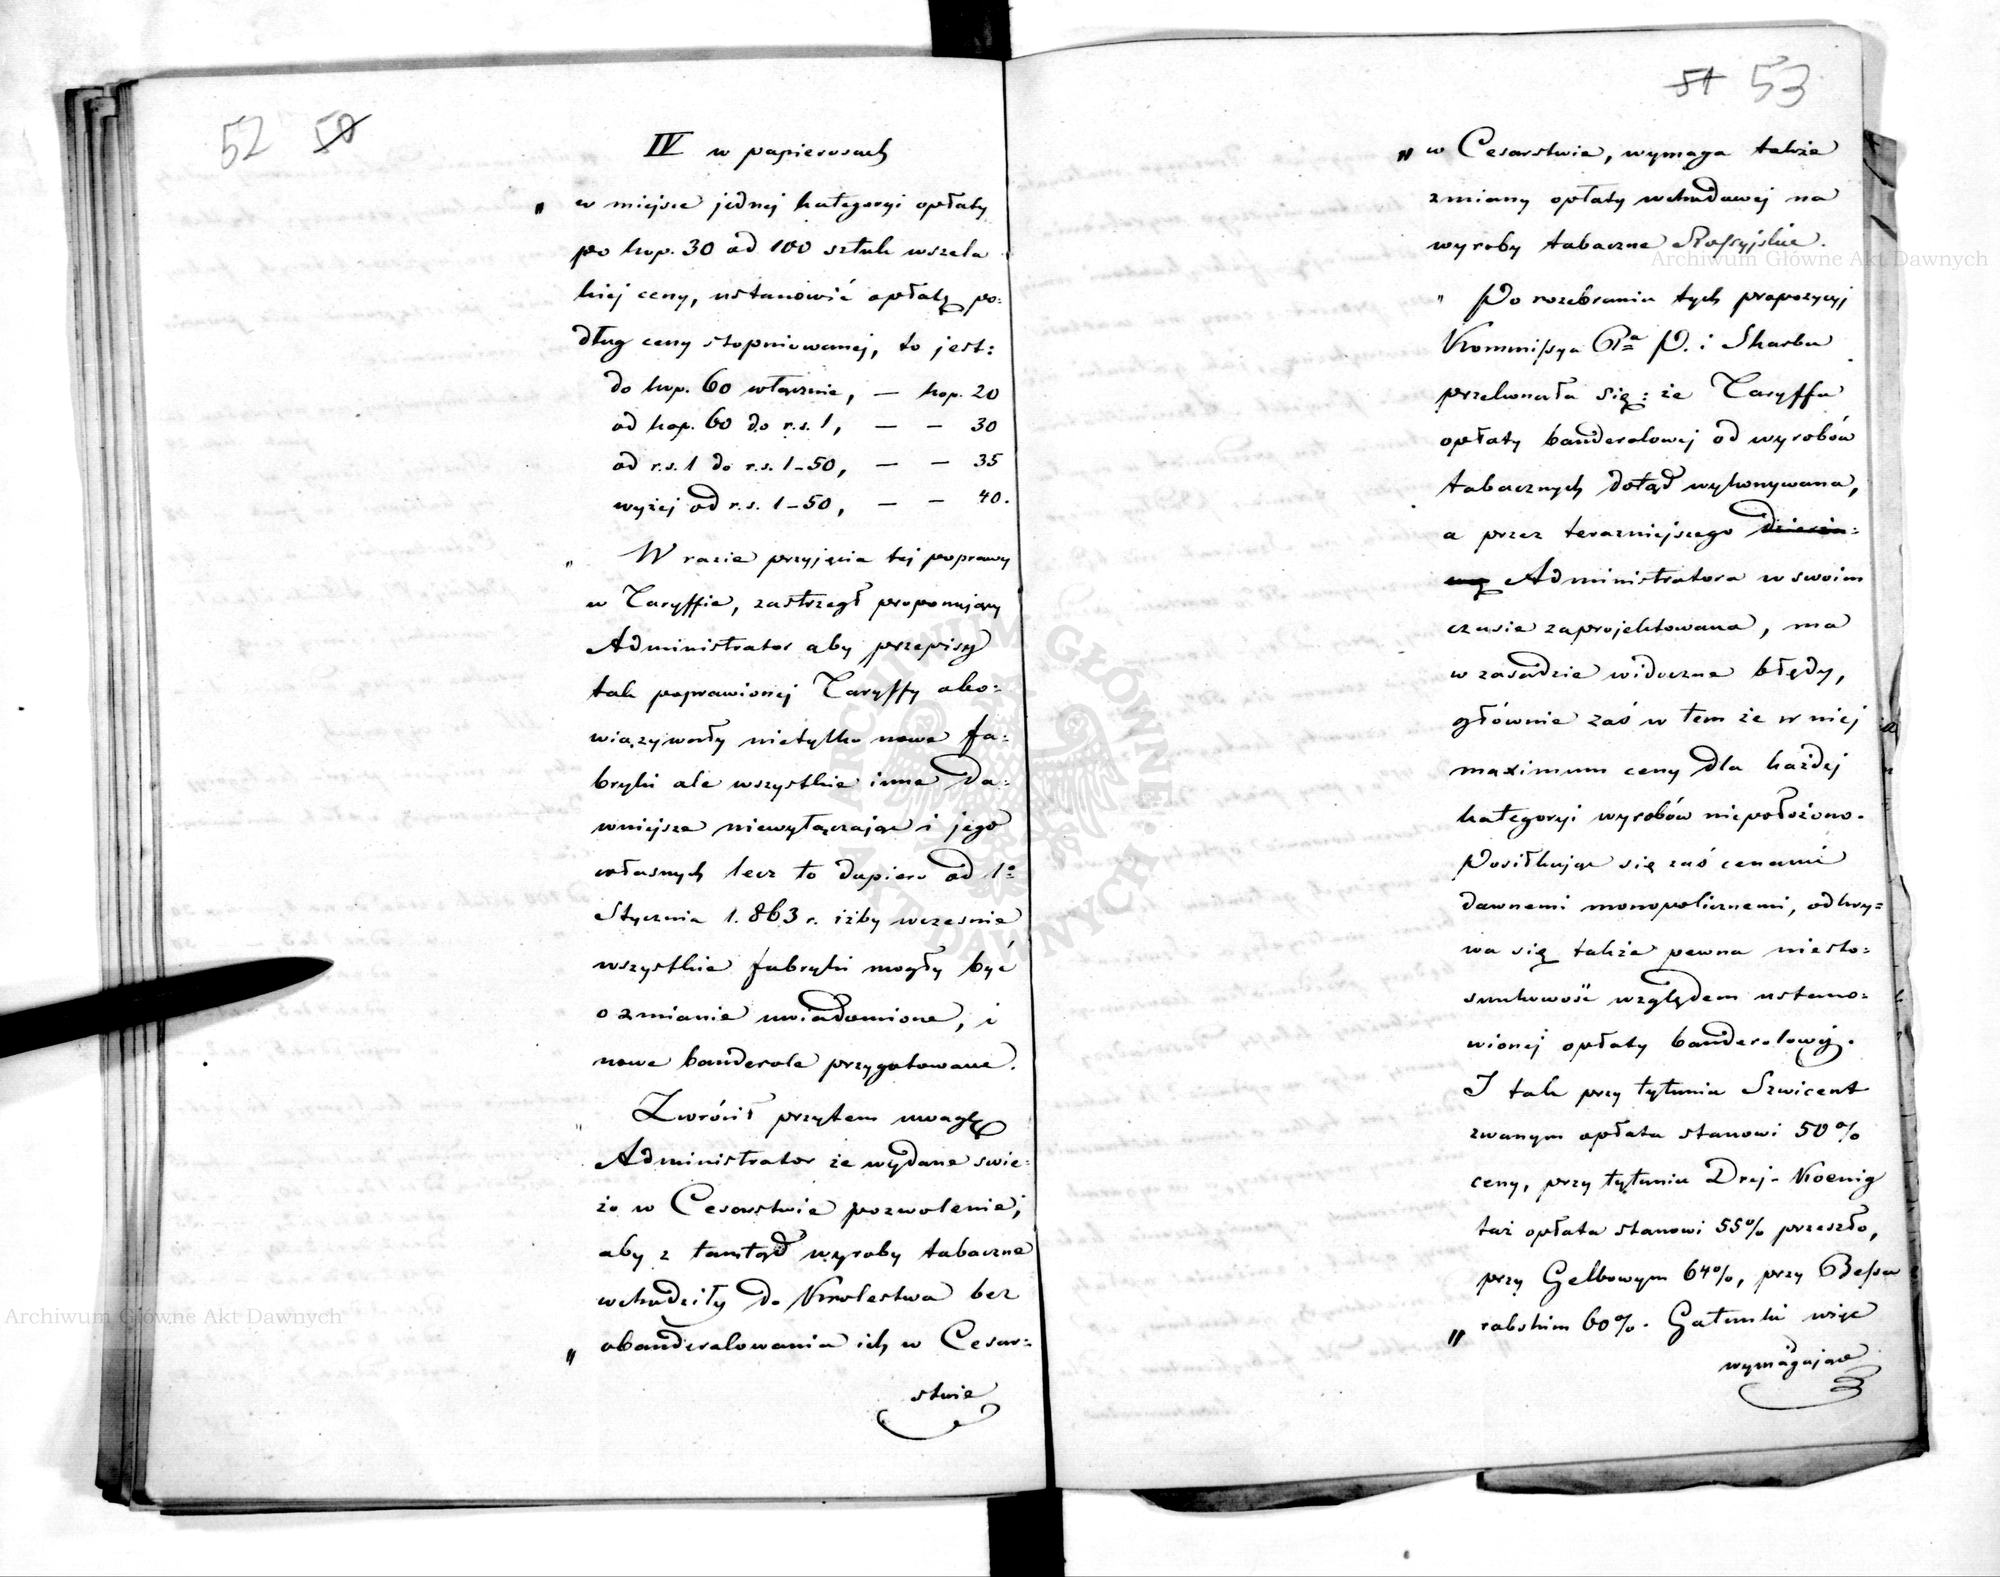 52 50
IV w papierosach
„ w miejsce jednej kategoryi opłaty
po kop. 30 od 100 sztuk wszela
kiej ceny, ustanowić opłatę po=
dług ceny stopniowanej, to jest:
do kop. 60 włącznie, — kop. 20
od kop. 60 do r.s. 1, — — 30
od r.s. 1 do r.s. 1-50, — — 35
wyżej od r.s. 1-50, — — 40.
„ W razie przyjęcia tej poprawy
w Taryffie, zastrzegł proponujący
Administrator aby przepisy
tak poprawionej Taryffy obo=
wiązywały nietylko nowe fa=
bryki ale wszystkie inne da=
wniejsze niewyłączając i jego
własnych lecz to dopiero od 1º
Stycznia 1.863 r. iżby wcześnie
wszystkie fabryki mogły być
o zmianie uwiadomione, i
nowe banderole przygotowane.
„ Zwrócił przytem uwagę
Administrator że wydane świe=
żo w Cesarstwie pozwolenie,
aby z tamtąd wyroby tabaczne
wchodziły do Królestwa bez
„ obanderolowania ich w Cesar=
stwie
51 53
„ w Cesarstwie, wymaga także
zmiany opłaty wchodowej na
wyroby tabaczne Rossyjskie.
„ Po rozebraniu tych propozycyj
Kommissya Rª P. i Skarbu
przekonała się: że Taryffa
opłaty banderolowej od wyrobów
tabacznych dotąd wykonywana,
a przez teraźniejszego
Administratora w swoim
czasie zaprojektowana, ma
w zasadzie widoczne błędy,
głównie zaś w tem że w niej
maximum ceny dla każdej
kategoryi wyrobów niepołożono.
Posiłkując się zaś cenami
dawnemi monopolicznemi, odkry=
wa się także pewna niesto=
sunkowość względem ustano=
wionej opłaty banderolowej.
I tak przy tytuniu Szwicent
zwanym opłata stanowi 50%
ceny, przy tytuniu Drej-Koenig
taż opłata stanowi 55% przeszło,
przy Gelbowym 64%, przy Bessa
„ rabskim 60%. Gatunki więc
wymagające
Archiwum Główne Akt Dawnych
Archiwum Główne Akt Dawnych
ARCHIWUM GŁÓWNE AKT DAWNYCH